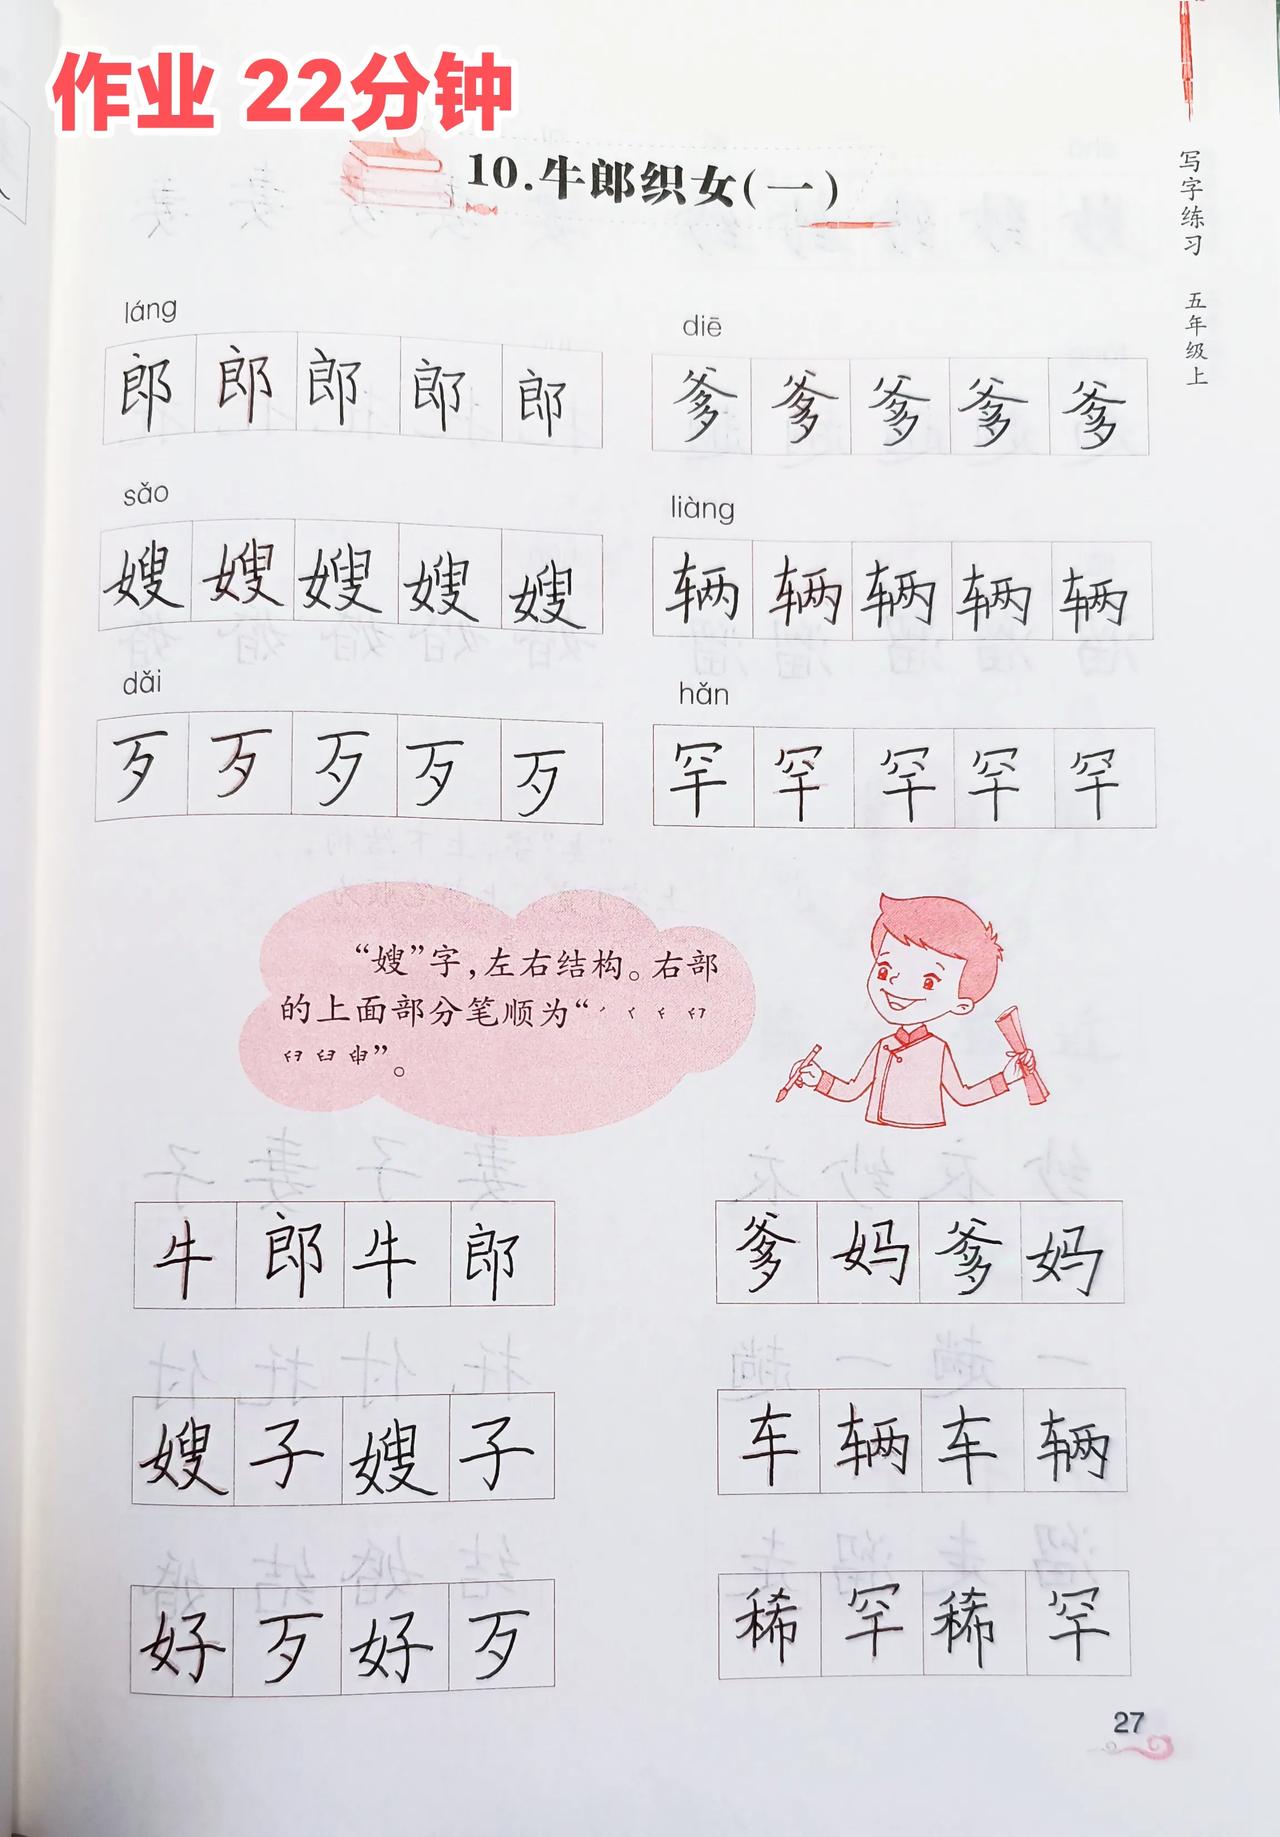 作业 22分钟
10.牛郎织女(一)
写字练习 五年级上
láng
郎郎郎郎郎
diē
爹爹爹爹爹
sǎo
嫂嫂嫂嫂嫂
liàng
辆辆辆辆辆
dǎi
歹歹歹歹歹
hǎn
罕罕罕罕罕
“嫂”字,左右结构。右部
的上面部分笔顺为“
”。
牛郎牛郎
爹妈爹妈
嫂子嫂子
车辆车辆
好歹好歹
稀罕稀罕
27